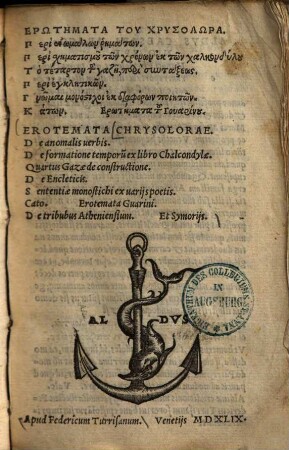 ΕΡΩΤΗΜΑΤΑ ΤΟΥ ΧΡΥΣΟΛΩΡΑ.
Περὶ ἀνωμάλων ῥημάτων.
Περὶ χηματισμοῦ τῶν χρόνων ἐκ τῶν χαλκονδύλου
Τὸ τέταρτον τ γαζῆ, περὶ συντάξεως.
Περὶ ἐγκλητικῶν.
Γνῶμαι μονόστιχοι ἐκ διαφόρων ποιητῶν.
Κάτων. Ερωτήματα τ Γουαρίνου.
EROTEMATA CHRYSOLORAE.
De anomalis uerbis.
De formatione temporũ ex libro Chalcondylæ.
Quartus Gazæ de constructione.
De Encleticis.
Sententiæ monostichi ex uarijs poetis.
Cato. Erotemata Guarini.
De tribubus Atheniensium. Et Symorijs.
AL DVS
IN
AUGSBURG
Apud Federicum Turrisanum. Venetijs MDXLIX.